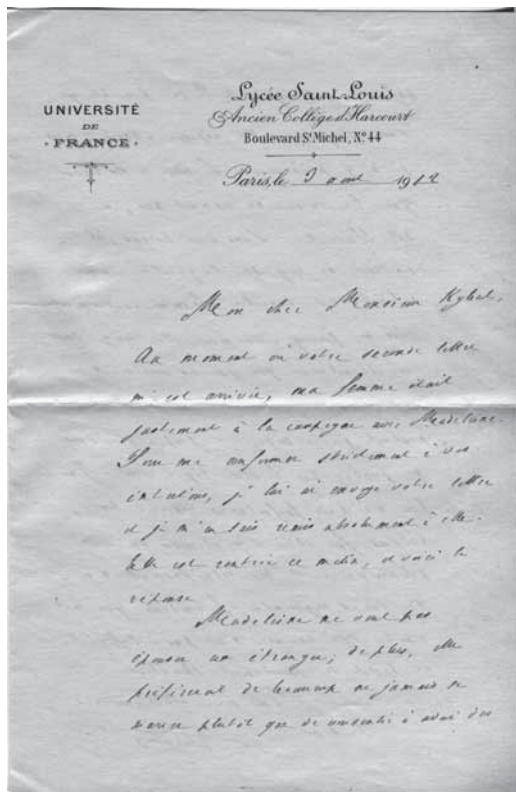 UNIVERSITÉ
DE
FRANCE.
Lycée Saint-Louis
Ancien Collège d'Harcourt
Boulevard St Michel, No 44
Paris, le 9 avril 1912
Mon cher Monsieur Kybal,
Au moment où votre seconde lettre
m'est arrivée, ma femme était
justement à la campagne avec Madeleine.
Pour me conformer strictement à vos
intentions, j'lui ai envoyé votre lettre
et je m'en suis remis absolument à elle.
Elle est rentrée ce matin, et voici la
réponse
Madeleine ne veut pas
épouser un étranger; de plus, elle
préférerait de beaucoup ne jamais se
marier plutôt que de consentir à avoir des